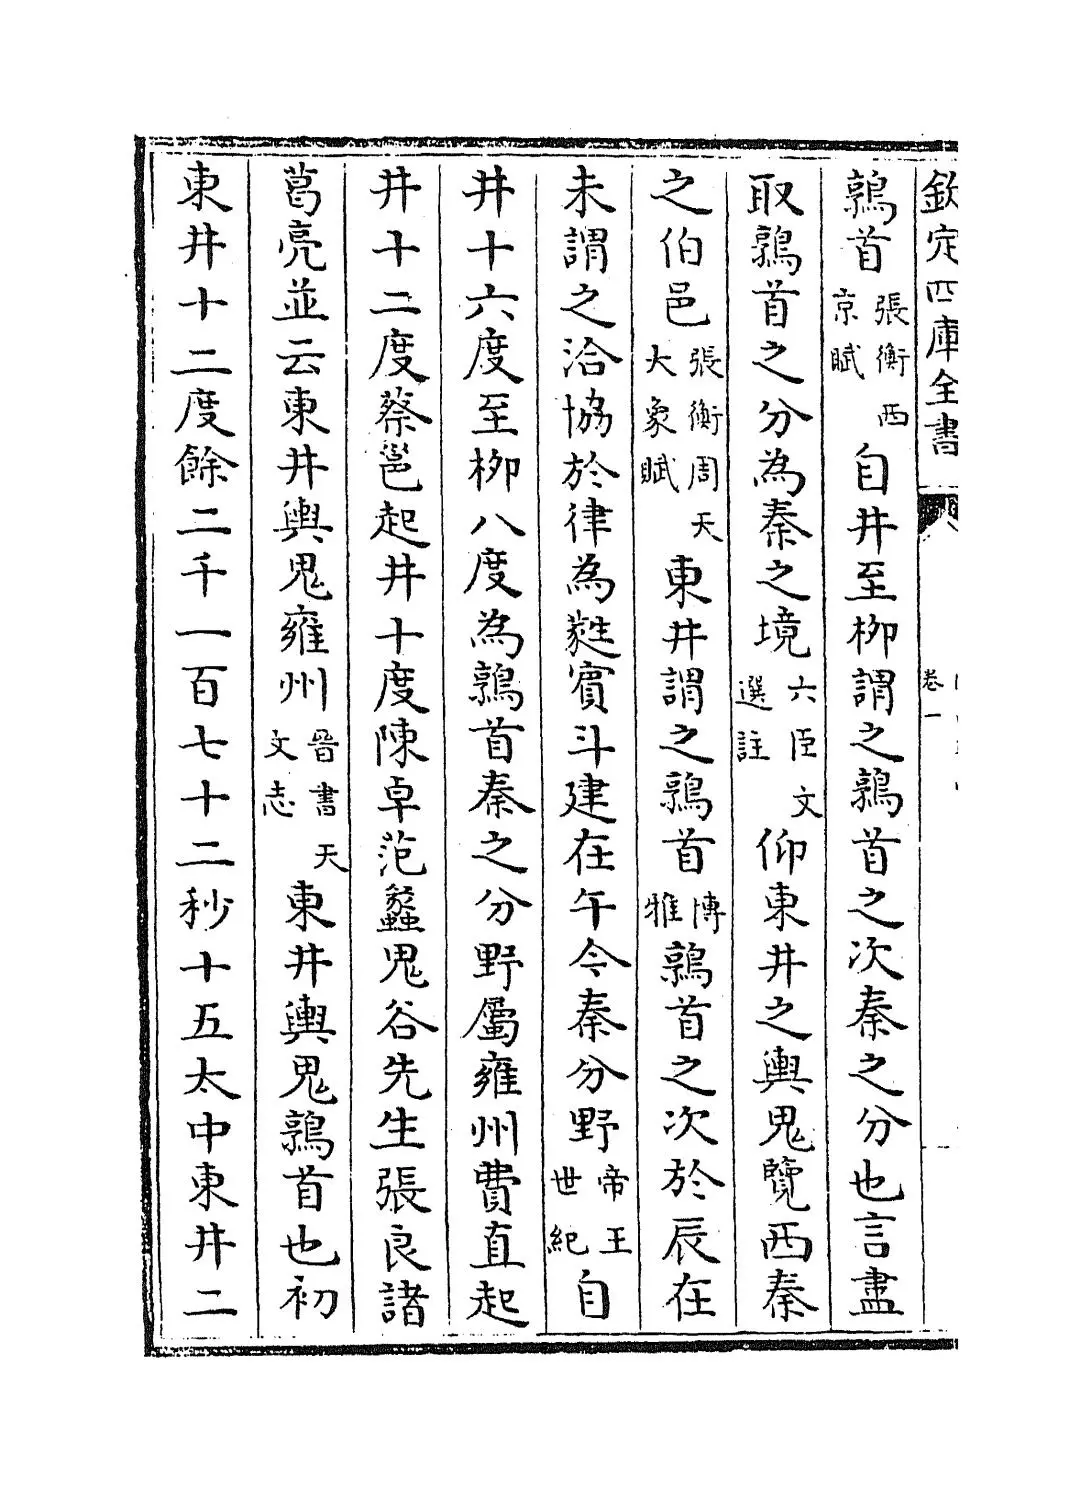 欽定四庫全書
卷一
鶉首張衡西京賦自井至柳謂之鶉首之次秦之分也言盡
取鶉首之分為秦之境六臣文選註仰東井之輿鬼覽西秦
之伯邑張衡周天大象賦東井謂之鶉首博雅鶉首之次於辰在
未謂之洽協於律為蕤賓斗建在午今秦分野帝王世紀自
井十六度至柳八度為鶉首秦之分野屬雍州費直起
井十二度蔡邕起井十度陳卓范蠡鬼谷先生張良諸
葛亮並云東井輿鬼雍州晉書天文志東井輿鬼鶉首也初
東井十二度餘二千一百七十二秒十五太中東井二